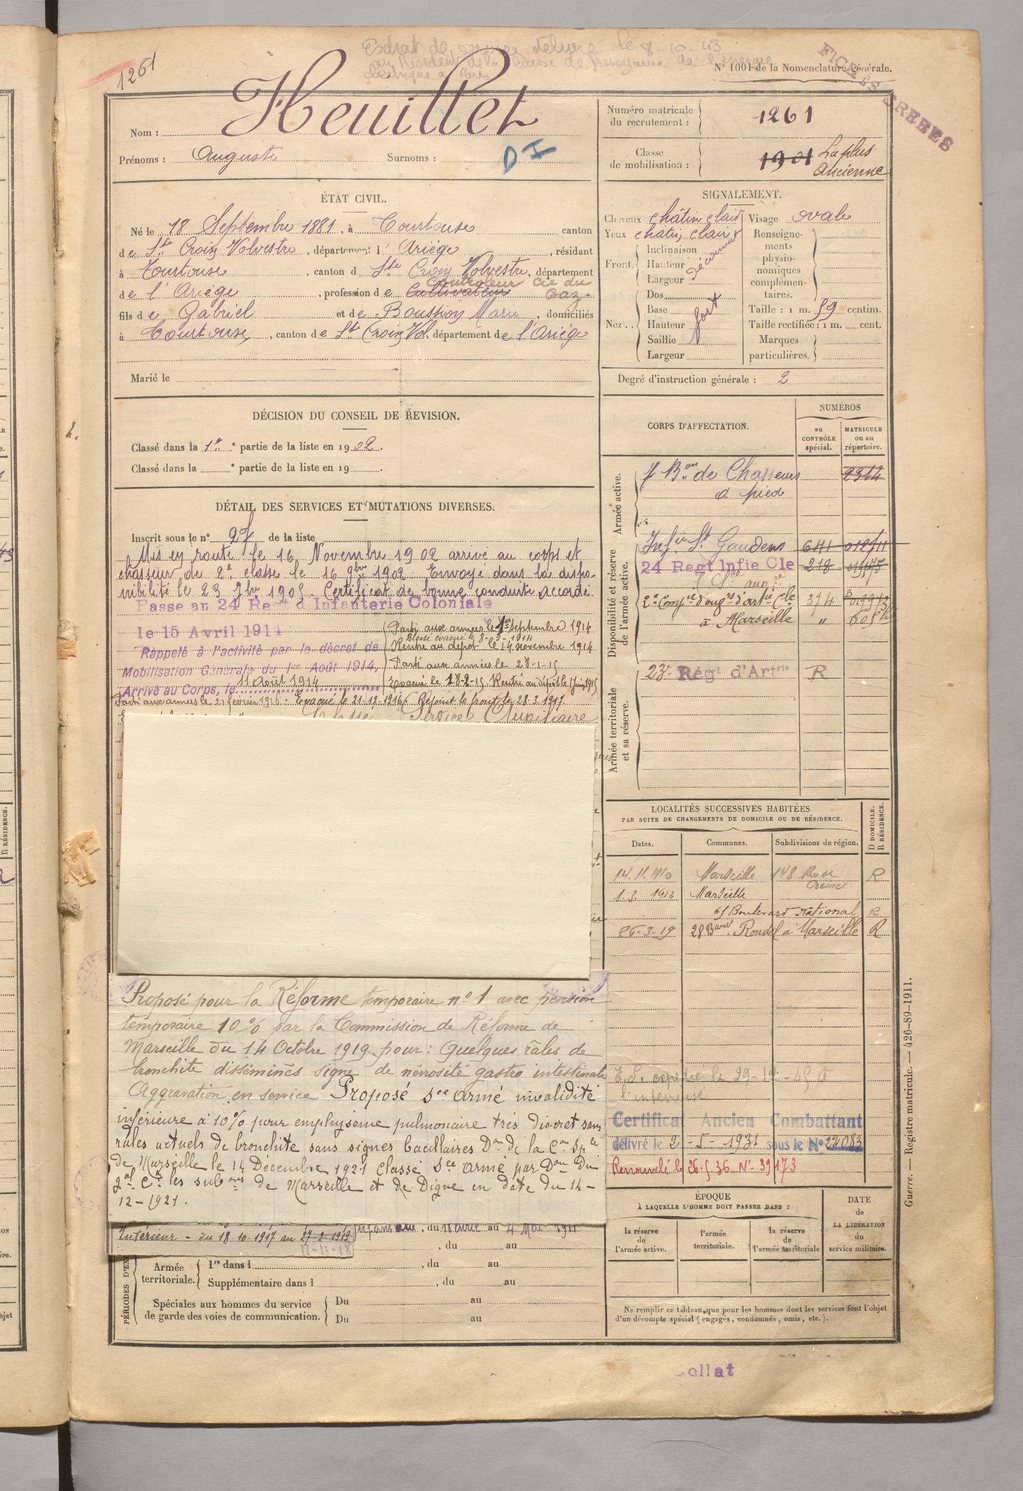 1261
Extrait de services délivré le 8-10-43
N° 1001 de la Nomenclature générale.
FICHES CREEES
Nom : Heuillet
Prénoms : Auguste Surnoms :
D I
Numéro matricule du recrutement : 1261
Classe de mobilisation : 1901 La plus Ancienne
ÉTAT CIVIL.
Né le 18 Septembre 1881, à Tourtouse canton
de Ste Croix Volvestre, département l'Ariège, résidant
à Tourtouse, canton de Ste Croix Volvestre, département
Controleur Cie du Gaz
de l'Ariège, profession de Cultivateur
fils de Gabriel et de Marie, domiciliés
à Tourtouse, canton de Ste Croix Vol, département de l'Ariège
Marié le
SIGNALEMENT.
Cheveux chatin clair
Yeux chatin clair
Front. Inclinaison
Hauteur
Largeur
découvert
Nez. Dos
Base
Hauteur
Saillie
Largeur
fort
Visage ovale
Renseignements physionomiques complémentaires.
Taille : 1 m. 59 centim.
Taille rectifiée : 1 m. cent.
Marques particulières.
Degré d'instruction générale : 2
DÉCISION DU CONSEIL DE REVISION.
Classé dans la 1re partie de la liste en 1902.
Classé dans la e partie de la liste en 19
DÉTAIL DES SERVICES ET MUTATIONS DIVERSES.
Inscrit sous le n° 27 de la liste
Mis en route le 16 Novembre 1902 arrivé au corps et
chasseur de 2e classe le 16 9bre 1902. Envoyé dans la dispo-
nibilité le 23 7bre 1905. Certificat de bonne conduite accordé.
Passe au 24 Regt d'Infanterie Coloniale
le 15 Avril 1914
Rappelé à l'activité par le décret de
Mobilisation Générale du 1er Août 1914,
Arrivé au Corps, le 11 août 1914
Parti aux armées le 1er septembre 1914
Rentré au dépôt le 14 novembre 1914
Parti aux armées le 28-1-15
Evacué le 18-2-15 Rentré au dépôt le
Parti aux armées le 21 février 1916. Evacué le 21-12-1916. Rejoint le front le 28-2-1917
Service Auxiliaire
Proposé pour la Réforme temporaire n° 1 avec pension
temporaire 10% par la Commission de Réforme de
Marseille du 14 Octobre 1919 pour : Quelques râles de
bronchite disséminés signe de névrosité gastro intestinale
Aggravation en service Proposé sce armé invalidité
inférieure à 10% pour emphysème pulmonaire très discret sans
râles actuels de bronchite sans signes bacillaires Don de la Con Sple
de Marseille le 14 Décembre 1921 classé sce armé par Don du
Gal Ct les subons de Marseille et de Digne en date du 14-
12-1921.
Intérieur - du 18 10 1917 au 27-2-1919
11-11-18
, du 18 avril au 4 Mai 1911
, du au
PÉRIODES D'EX
Armée territoriale. 1re dans l , du au
Supplémentaire dans l , du au
Spéciales aux hommes du service de garde des voies de communication. Du au
Du au
CORPS D'AFFECTATION.
NUMÉROS
au CONTRÔLE spécial.
MATRICULE ou au répertoire.
Armée active.
7 Bon de Chasseurs à pied 2314
Disponibilité et réserve de l'armée active.
Infie St Gaudens 641
24 Regt Infie Cle 218
à Marseille
374
Armée territoriale et sa réserve.
23e Régt d'Artie R
LOCALITÉS SUCCESSIVES HABITÉES
PAR SUITE DE CHANGEMENTS DE DOMICILE OU DE RÉSIDENCE.
Dates. Communes. Subdivisions de région. D DOMICILE. R RÉSIDENCE.
14.11.1910 Marseille 148 Rue de Crimée R
1.3.1912 Marseille
61 Boulevard National R
28 Bard Rondel à Marseille R
Certificat Ancien Combattant
délivré le 2-5-1931 sous le N° 22083
Renouvelé le 26.5.36 N° 39173
ÉPOQUE
À LAQUELLE L'HOMME DOIT PASSER DANS :
la réserve de l'armée active.
l'armée territoriale.
la réserve de l'armée territoriale
DATE de LA LIBÉRATION du service militaire.
Ne remplir ce tableau que pour les hommes dont les services font l'objet
d'un décompte spécial (engagés, condamnés, omis, etc.).
Guerre. — Registre matricule. — 426-89-1911.
ollat